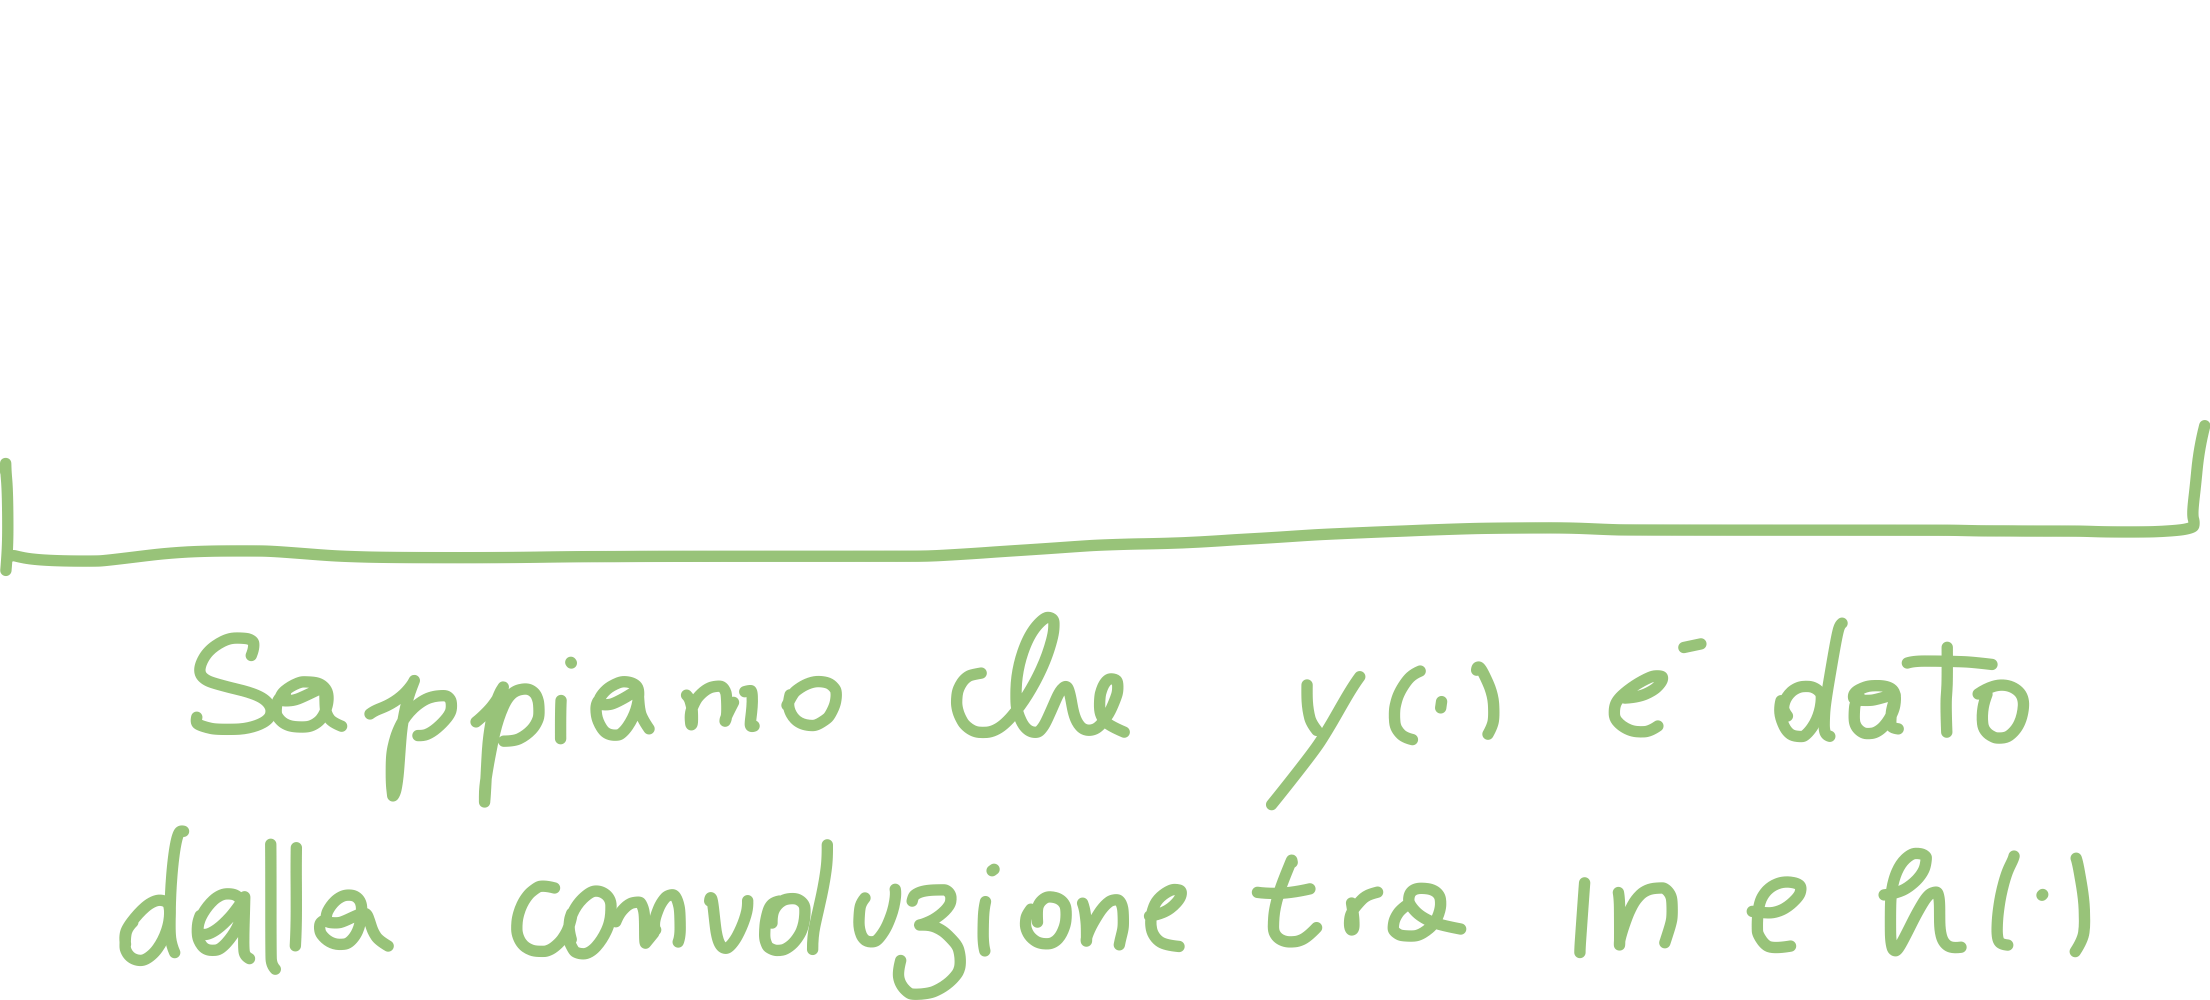 Sappiamo che y(·) é dato
dalla convoluzione tra in e h(·)